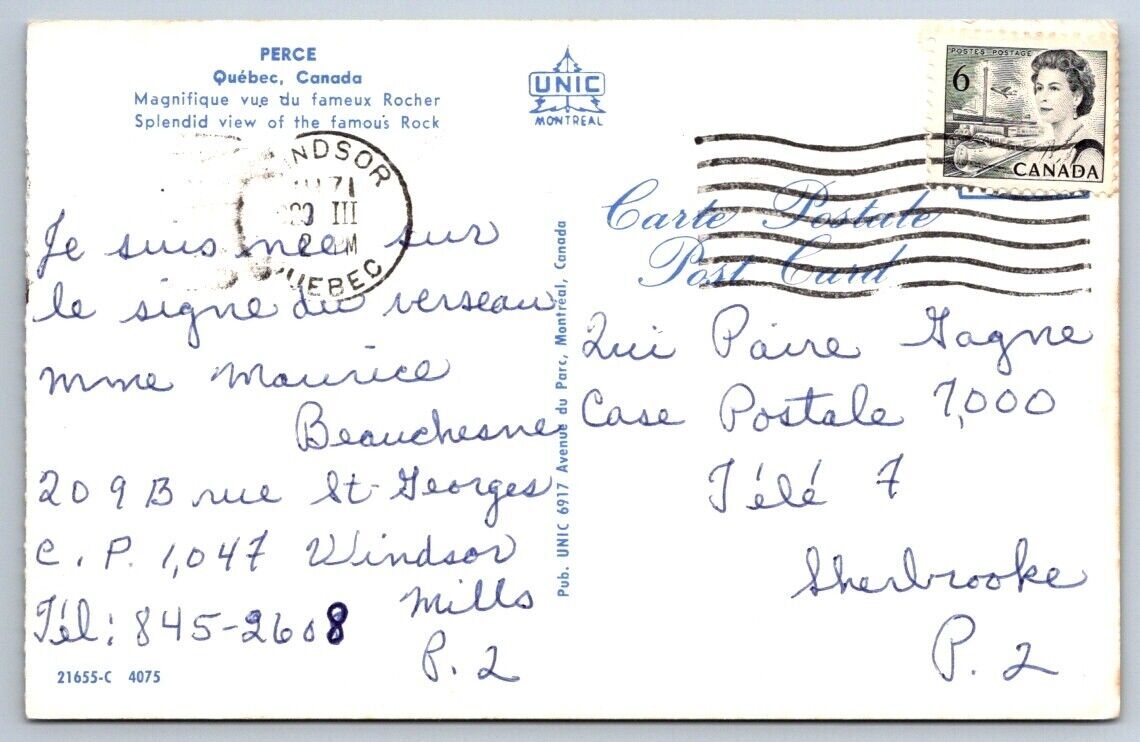 PERCE
Québec, Canada
Magnifique vue du fameux Rocher
Splendid view of the famous Rock
UNIC
MONTREAL
POSTES - POSTAGE
6
CANADA
NDSOR
71
III
PM
UEBEC
Carte Postale
Post Card
Je suis née sur
le signe du verseau
mme Maurice
Beauchesne
209 B rue St-Georges
C. P. 1,047 Windsor
Mills
Tél: 845-2608
P. Q
21655-C 4075
Pub. UNIC 6917 Avenue du Parc, Montréal, Canada
Qui Paire Gagne
Case Postale 7,000
Télé 7
Sherbrooke
P. Q